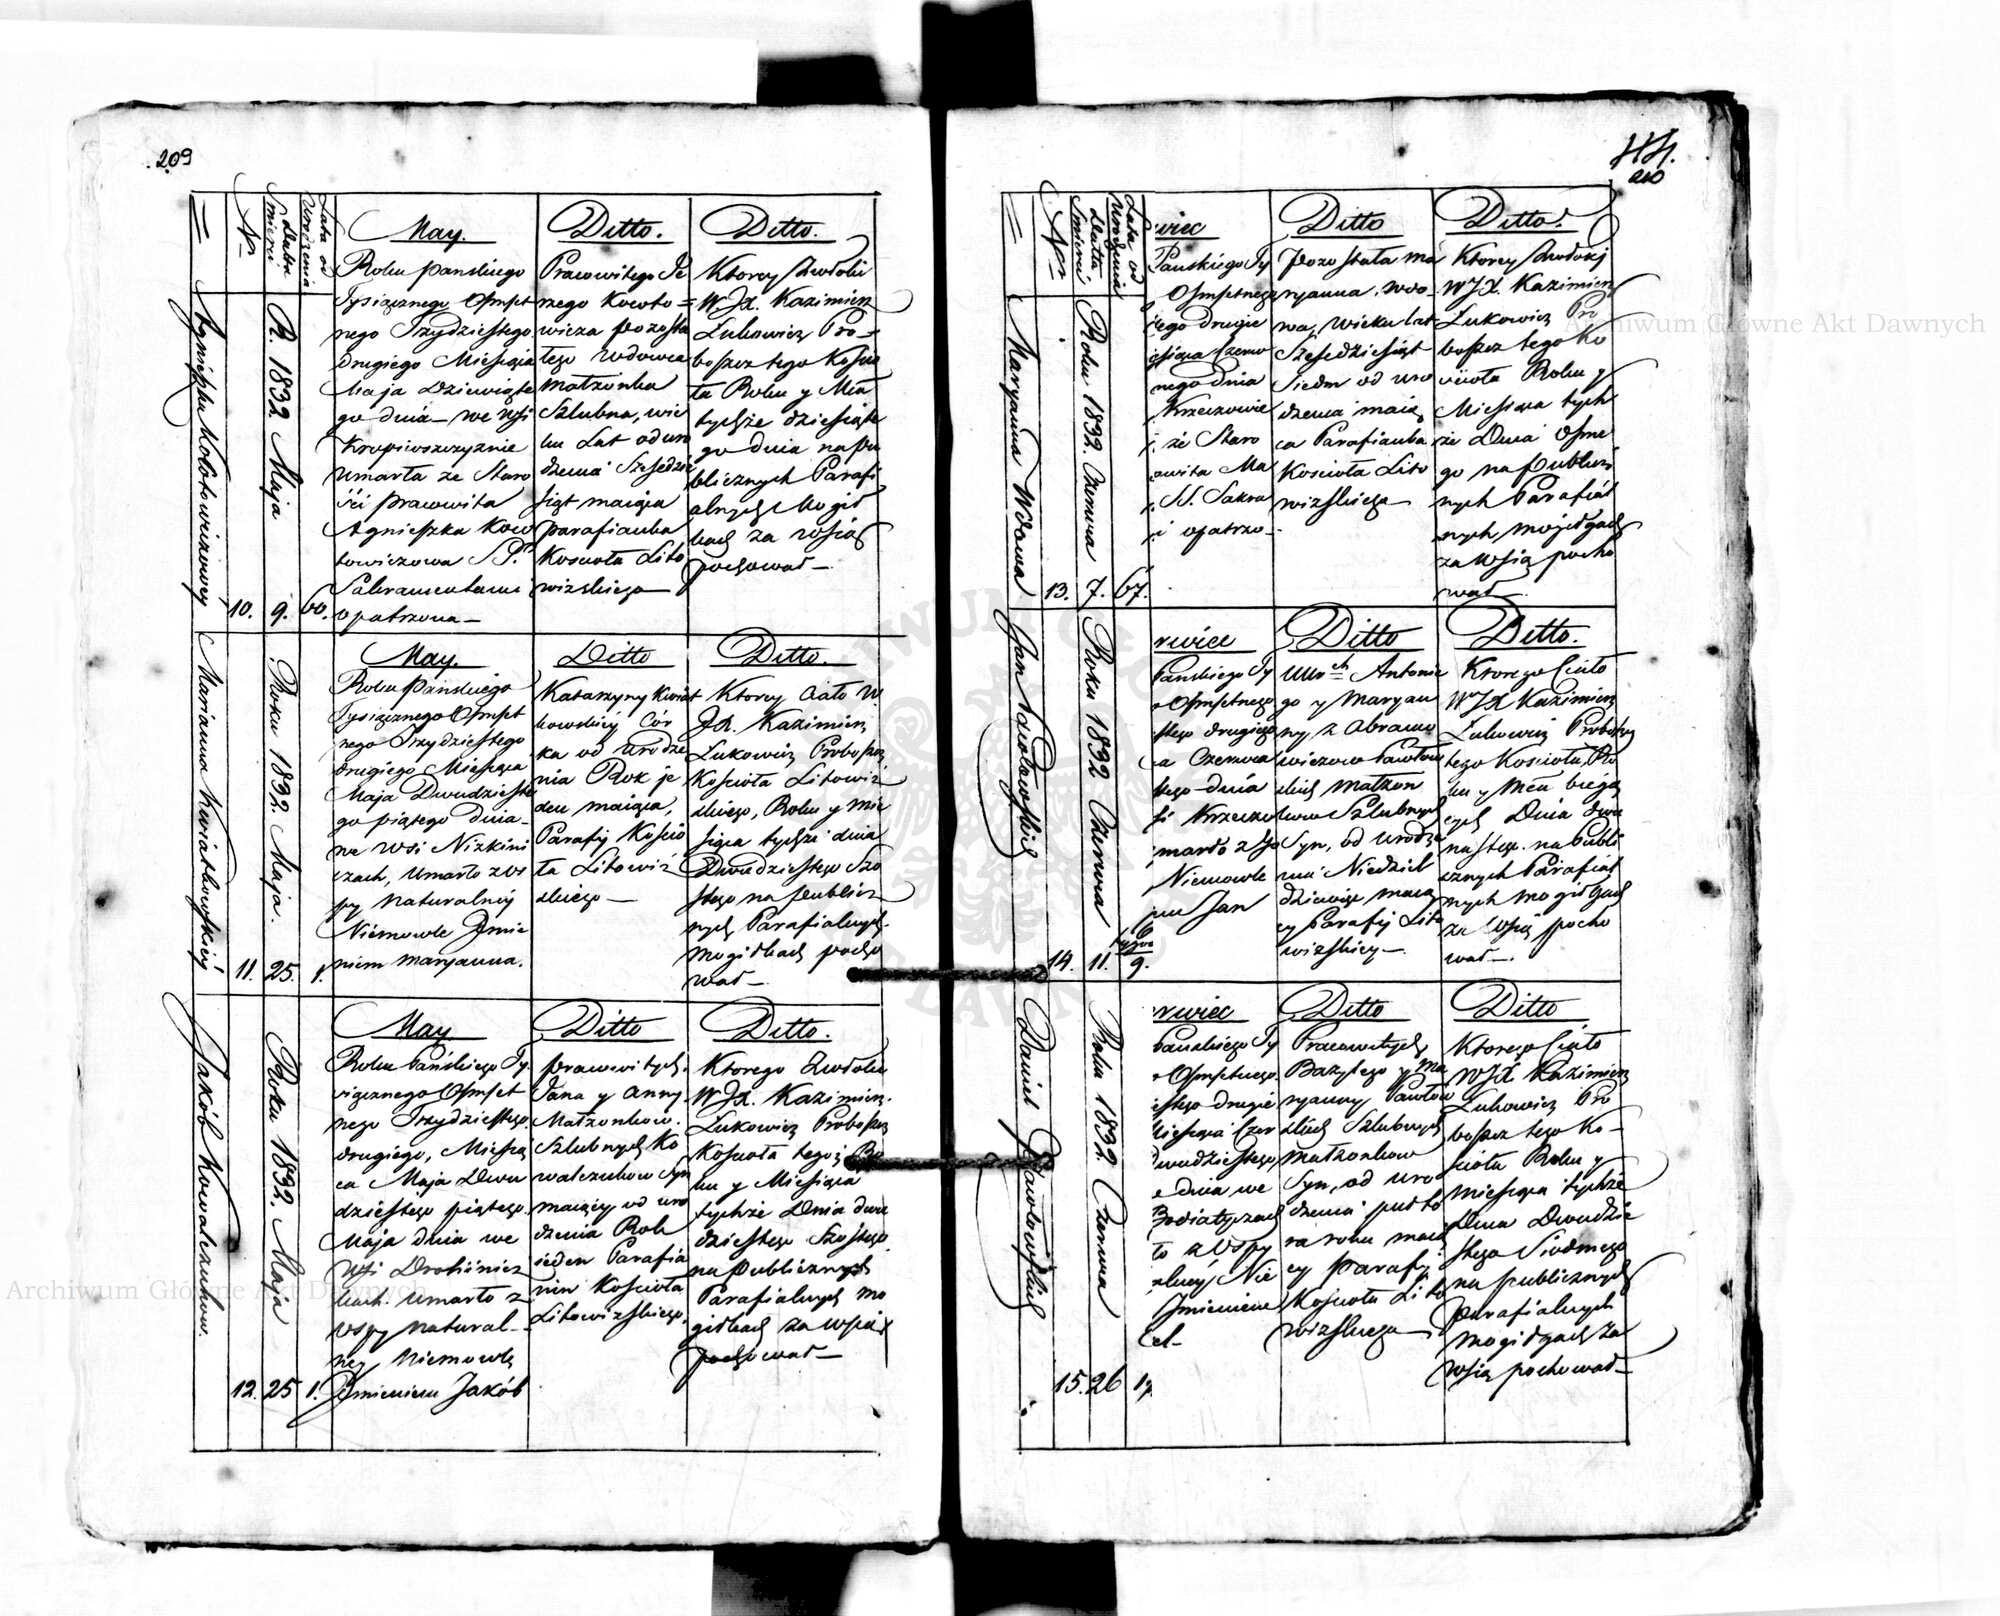 209
Nro
Datta Śmierci
Lata od Urodzenia
Agnieszka Kołtowiczowey
10.
R. 1832 Maja
9.
60.
May.
Roku pańskiego
Tysiącznego Osmset
nego Trzydziestego
drugiego Miesiąca
Maja Dziewiąte
go dnia we wsi
Kropiwszczyznie
umarła ze Staro
ści pracowita
Agnieszka
Sakramentami
opatrzona
Ditto.
Pracowitego
wicza pozosta
tego wdowca
małżonka
Szlubna, wie
ku Lat od uro
dzenia Szesdzie
siąt maiąca
parafianka
Koscioła Lito
wizskiego
Ditto.
Ktorey Zwłoki
WJX. Kazimierz
Lukowicz Pro
boszcz tego Koscio
ła Roku y Mca
tychże dziesiąte
go dnia na pu
blicznych Parafi
alnych Mogił
kach za wsią
pochował
Marianna Kwiatkowskiey
11.
Roku 1832. Maja.
25.
1.
May.
Roku Pańskiego
Tysiącznego Osmset
nego Trzydziestego
drugiego Miesiąca
Maja Dwudzieste
go piątego dnia
we wsi Nizkini
czach, umarło z os
py naturalney
Niemowle Jmie
niem Maryanna.
Ditto
Katarzyny Kwiat
kowskiey Cor
ka od Urodze
nia Rok je
den maiąca,
Parafij Koscio
ła Litowiz
skiego
Ditto.
Ktorey Ciało W
JX. Kazimierz
Lukowicz Proboszcz
Kościoła Litowiz
skiego, Roku y Mie
siąca tychże dnia
Dwudziestego Szo
stego na publicz
nych Parafialnych
mogiłkach pocho
wał
Jakób Kowalczukow.
12.
Roku 1832. Maja
25
1.
May
Roku Pańskiego Ty
siącznego Osmset
nego Trzydziestego
drugiego, Miesią
ca Maja Dwu
dziestego piątego
Maja dnia we
wsi
umarło z
ospy natural
ney Niemowlę
Jmieniem Jakób
Ditto
pracowitych
Jana y Anny
Małżonkow
Szlubnych Ko
walczukow Syn
maiący od uro
dzenia Rok
ieden Parafia
nin Kościoła
Litowizskiego.
Ditto.
Ktorego Zwłoki
WJX. Kazimierz
Lukowicz Proboszcz
Kościoła tegoż Ro
ku y Miesiąca
tychże Dnia dwu
dziestego Szostego
na publicznych
Parafialnych mo
giłkach za wsią
pochował
210
Nro
Datta Śmierci
Lata od Urodzenia
Maryanna Wdowa
13.
Roku 1832. Czerwca
7.
67.
wiec
Pańskiego Ty
Osmsetnego
tego drugie
esiąca Czerw
nego dnia
że Staro
owita Ma
SS. Sakra
i opatrzo
Ditto
pozostała ma
ryanna, wdo
wa, wieku lat
Szesdziesiąt
Siedm od uro
dzenia maią
ca Parafianka
Kosciola Lito
wizskiego
Ditto.
Ktorey Zwłoki
WJX. Kazimierz
Lukowicz Pro
boszcz tego Ko
ścioła Roku y
Miesiąca tych
że Dnia Osme
go na publicz
nych Parafial
nych mogiłgach
za wsią pocho
wał
Jan Pawłowskich
14.
Roku 1832 Czerwca
11.
9.
rwiec
Pańskiego Ty
Osmsetnego
stego drugiego
a Czerwca
tego dnia
Niemowle
Jan
Ditto
Antonie
go y Maryan
ny z Abramo
wiczow Pawłow
skich Małżon
kow Szlubnych
Syn, od Urodze
nia Niedziel
dziewięc maią
cy Parafij Lito
wizskiey
Ditto.
Ktorego Ciało
WJX Kazimierz
Lukowicz Proboszcz
tego Kościoła, Ro
ku y Mca bieżą
cych Dnia dwu
nastego na Publi
cznych Parafial
nych mogiłgach
za wsią pocho
wał
Daniel Pawłowskich
15.
Roku 1832. Czerwca
26
rwiec
Pańskiego Ty
Osmsetnego
estego drugie
Miesiąca Czer
dwudziestego
dnia we
ło z ospy
Nie
Jmieniem
Ditto
Pracowitych
Bazylego y Ma
ryanny Pawłow
skich Szlubnych
małżonkow
Syn, od uro
dzenia puł to
ra roku maią
cy parafij
Kościoła Lito
wizskiego
Ditto
Ktorego Ciało
WJX Kazimierz
Lukowicz Pro
boszcz tego Ko
ścioła Roku y
miesiąca tychże
Dnia Dwudzie
stego Siodmego
na publicznych
parafialnych
mogiłgach za
wsią pochował
Archiwum Główne Akt Dawnych
Archiwum Główne Akt Dawnych